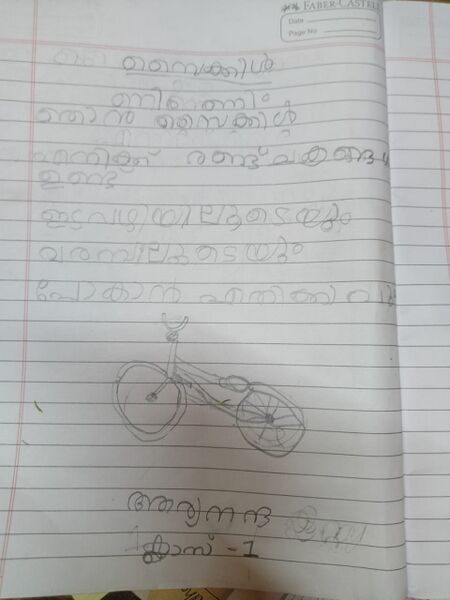 FABER-CASTELL
Date
Page No
സൈക്കിൾ
ണിം ണിം
ഞാൻ സൈക്കിൾ
എനിക്ക് രണ്ട് ചക്രങ്ങൾ
ഉണ്ട്
ഇടവഴിയിലൂടെയും
വരമ്പിലൂടെയും
പോകാൻ എനിക്കു
ആര്യനന്ദ
ക്ലാസ് -1